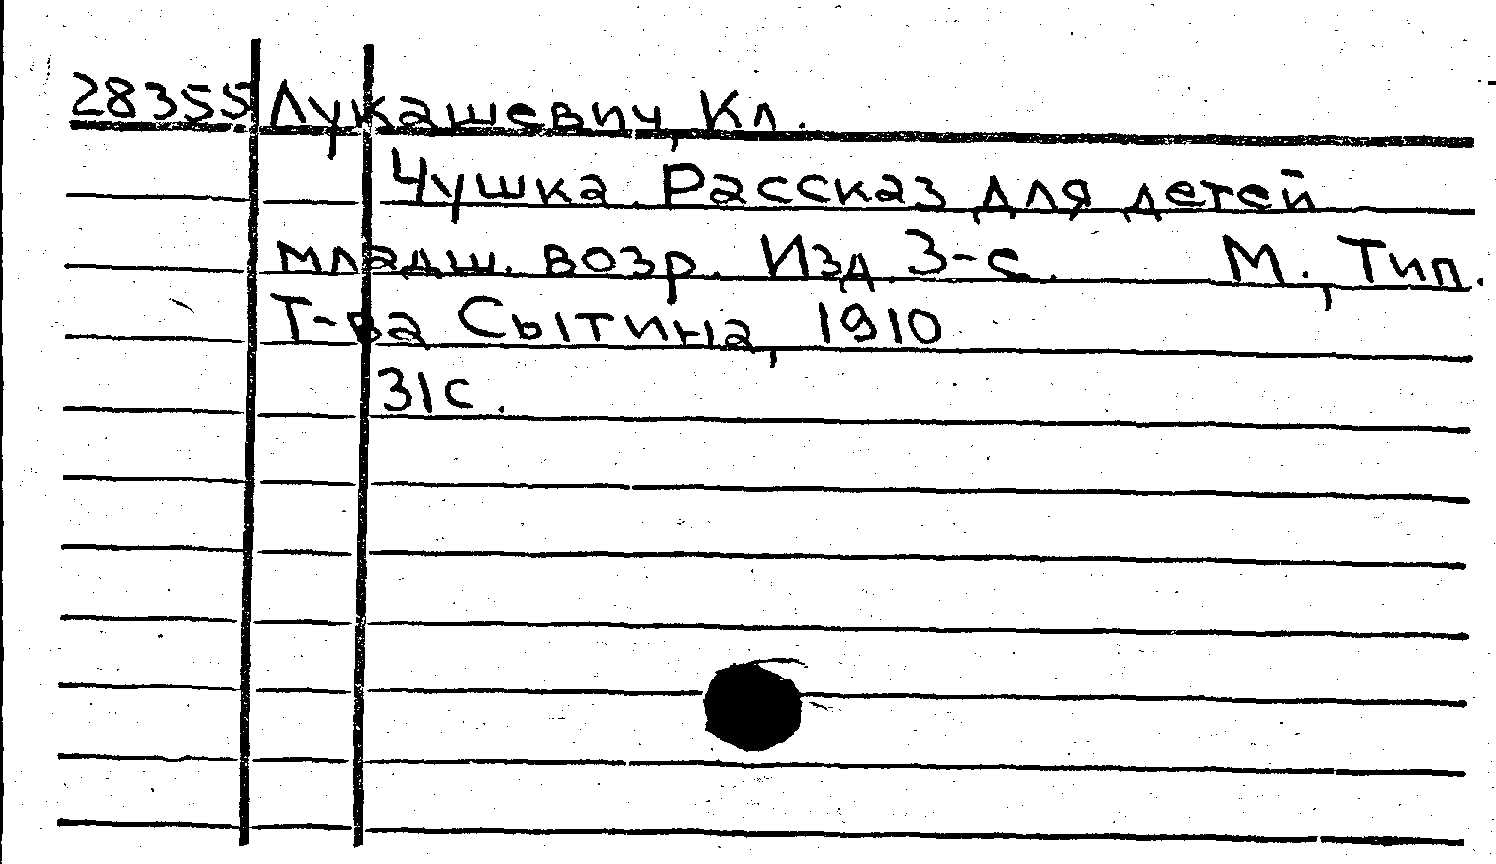 28355 Лукашевич, Кл.
Чушка. Рассказ для детей
младш. возр. Изд. 3-е. М., Тип.
Т-ва Сытина, 1910
31с.